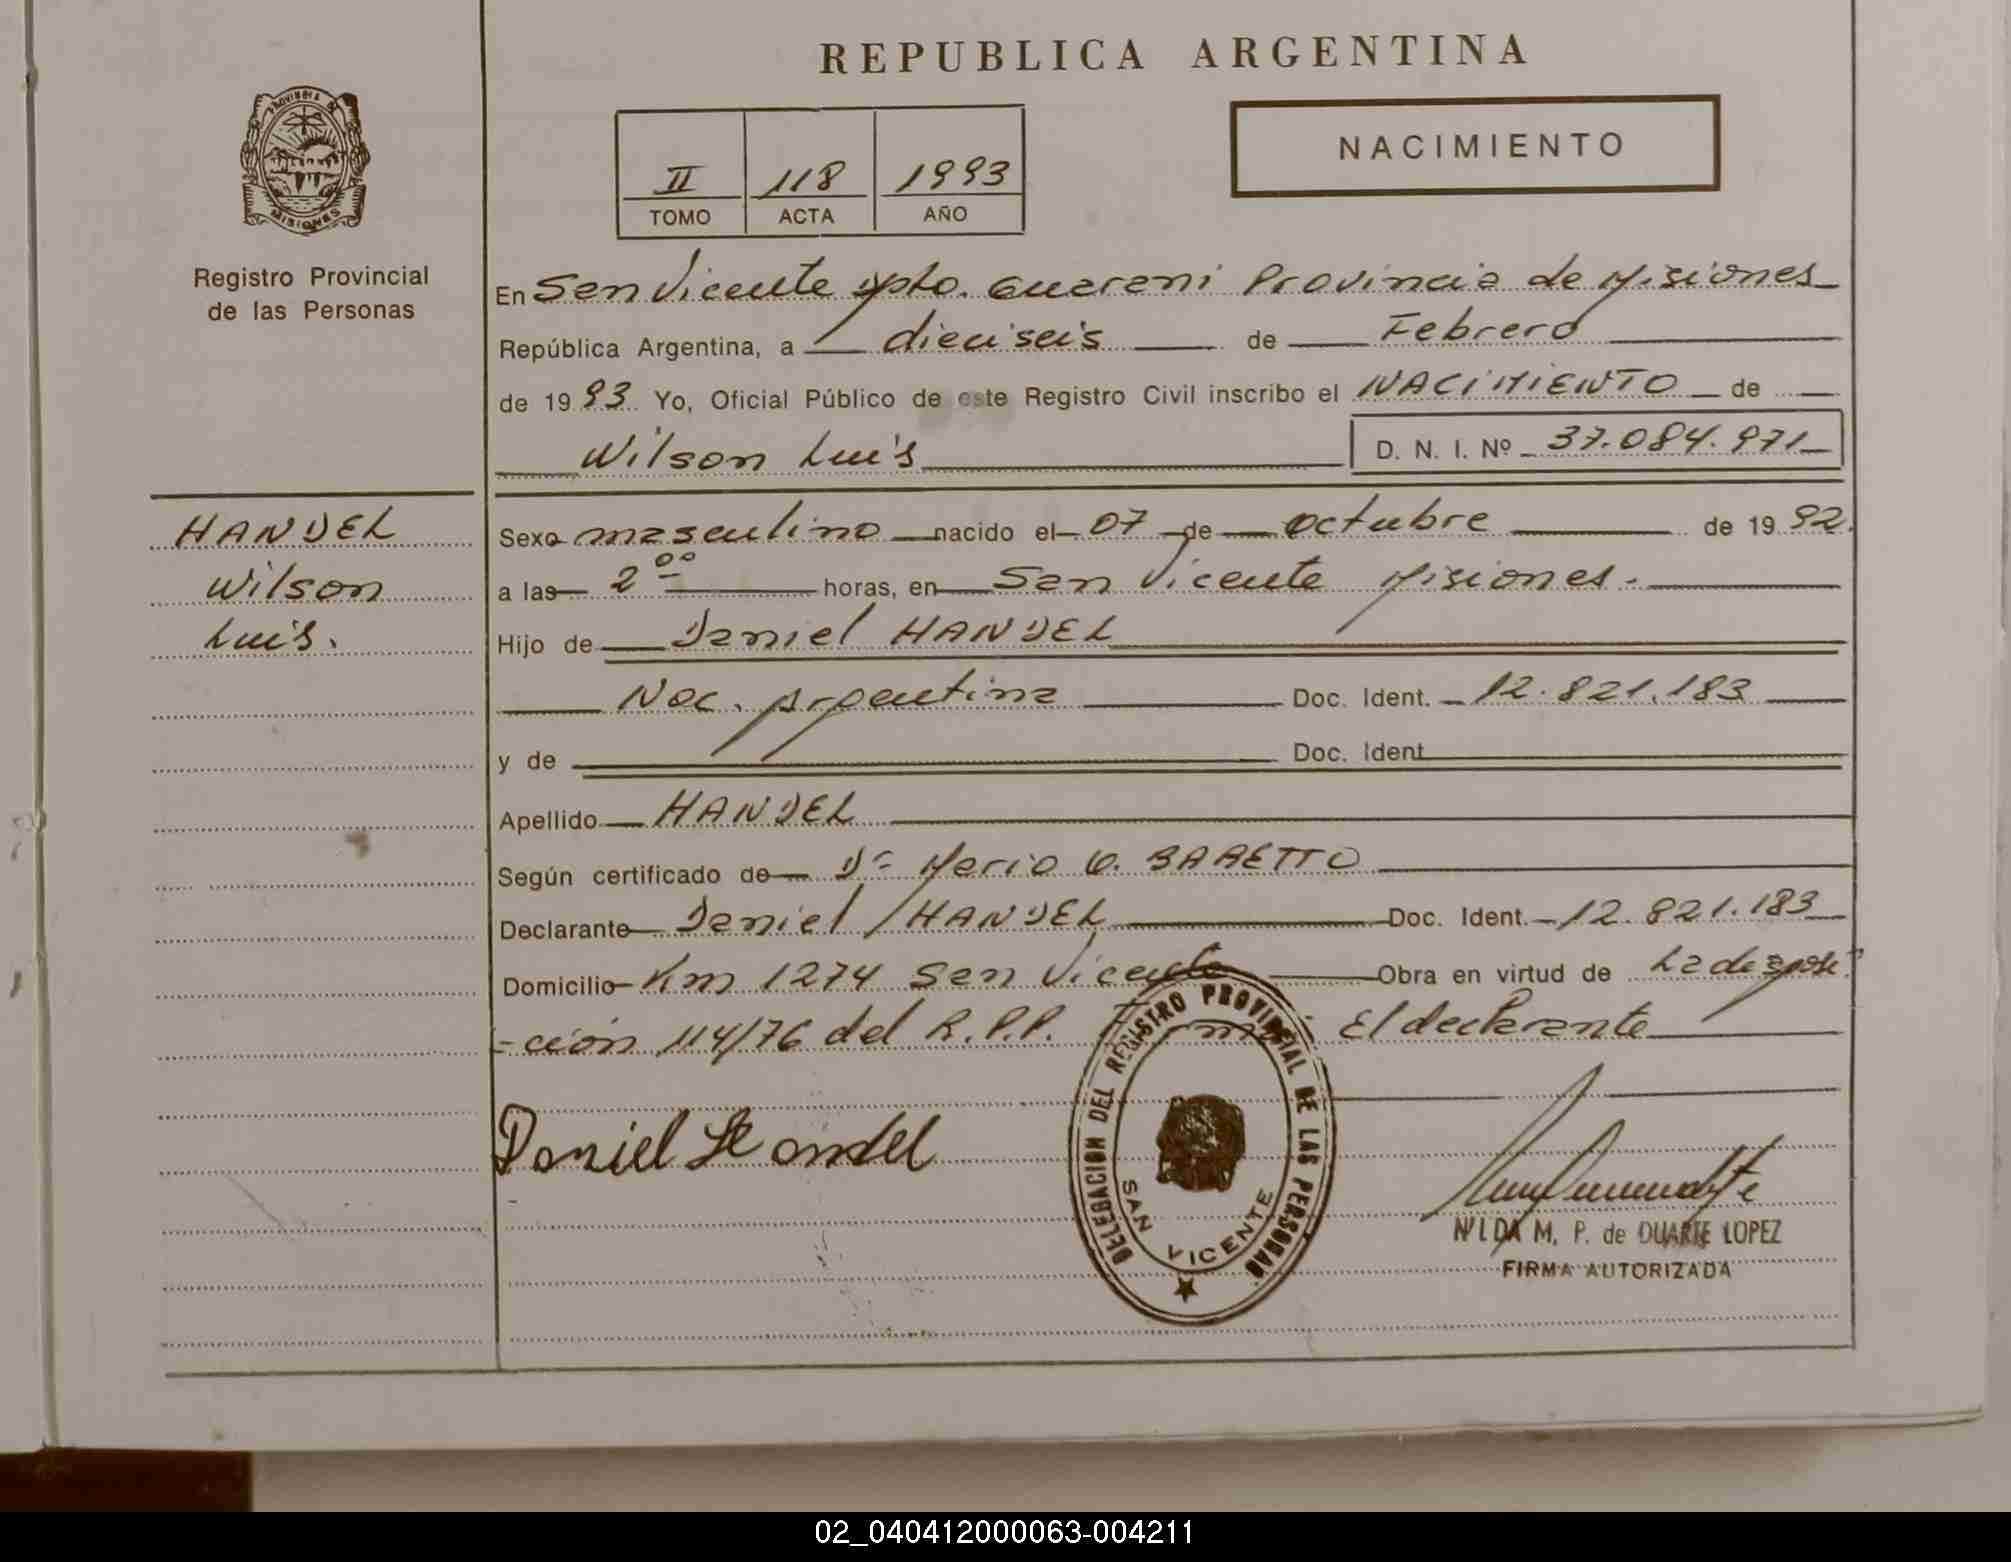 REPUBLICA ARGENTINA
PROVINCIA DE
MISIONES
Registro Provincial
de las Personas
II 118 1993
TOMO ACTA AÑO
NACIMIENTO
En San Vicente Dpto. Guarani Provincia de Misiones
República Argentina, a dieciseis de Febrero
de 1993 Yo, Oficial Público de este Registro Civil inscribo el NACIMIENTO de
Wilson Luis D. N. I. Nº 37.084.971
HANDEL
Wilson
Luis.
Sexo masculino nacido el 07 de octubre de 1992.
a las 2 00 horas, en San Vicente Misiones.
Hijo de Daniel HANDEL
Nac. Argentina Doc. Ident. 12.821.183
y de Doc. Ident
Apellido HANDEL
Según certificado de Dr Mario O. BARETTO
Declarante Daniel HANDEL Doc. Ident. 12.821.183
Domicilio Km 1274 San Vicente Obra en virtud de La disposi
-ción 114/76 del R.P.P. Firma: El declarante
Daniel Handel
DELEGACION DEL REGISTRO PROVINCIAL DE LAS PERSONAS
SAN VICENTE
NILDA M. P. de DUARTE LOPEZ
FIRMA AUTORIZADA
02_040412000063-004211